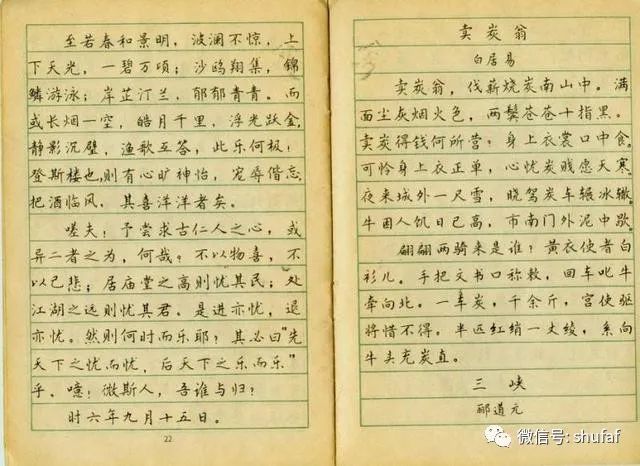 至若春和景明，波澜不惊，上
下天光，一碧万顷；沙鸥翔集，锦
鳞游泳；岸芷汀兰，郁郁青青。而
或长烟一空，皓月千里，浮光跃金，
静影沉璧，渔歌互答，此乐何极！
登斯楼也，则有心旷神怡，宠辱偕忘，
把酒临风，其喜洋洋者矣。
嗟夫！予尝求古仁人之心，或
异二者之为，何哉？不以物喜，不
以己悲；居庙堂之高则忧其民；处
江湖之远则忧其君。是进亦忧，退
亦忧。然则何时而乐耶？其必曰“先
天下之忧而忧，后天下之乐而乐”
乎。噫！微斯人，吾谁与归？
时六年九月十五日。
22
卖炭翁
白居易
卖炭翁，伐薪烧炭南山中。满
面尘灰烟火色，两鬓苍苍十指黑。
卖炭得钱何所营？身上衣裳口中食。
可怜身上衣正单，心忧炭贱愿天寒。
夜来城外一尺雪，晓驾炭车辗冰辙。
牛困人饥日已高，市南门外泥中歇。
翩翩两骑来是谁？黄衣使者白
衫儿。手把文书口称敕，回车叱牛
牵向北。一车炭，千余斤，宫使驱
将惜不得。半匹红绡一丈绫，系向
牛头充炭直。
三峡
郦道元
微信号: shufaf